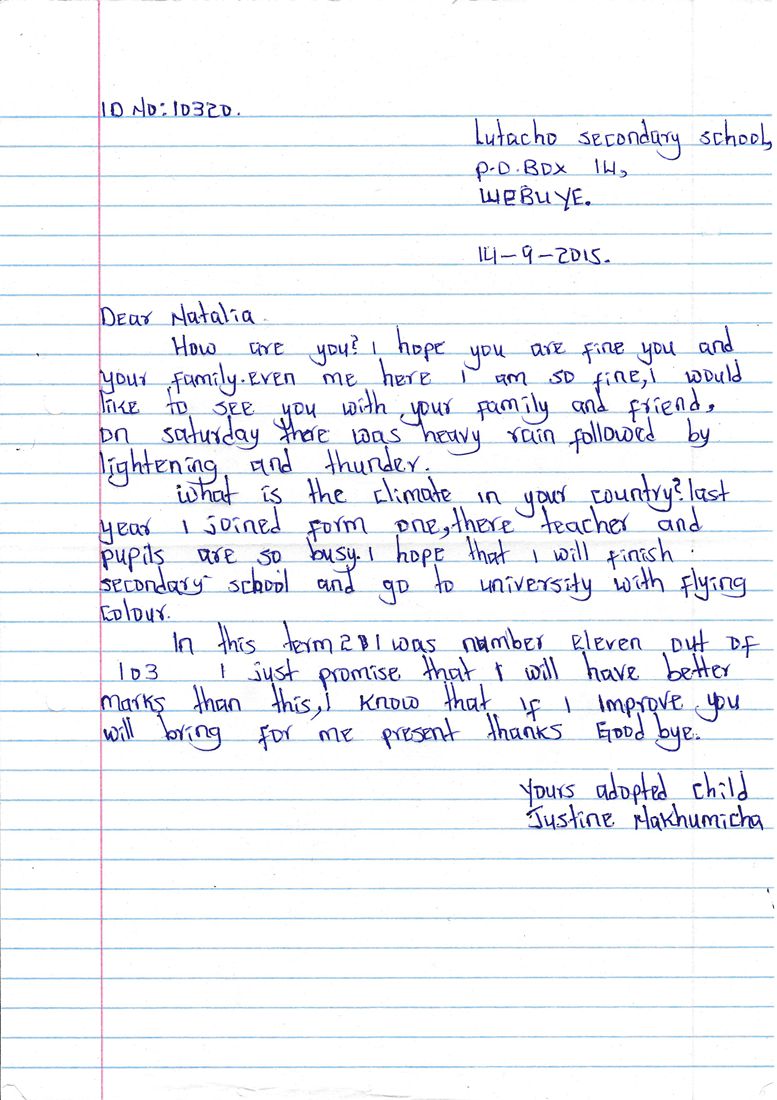 ID NO: 10320.
Lutacho secondary school,
P.O.BOX 14,
WEBUYE.
14-9-2015.
Dear Natalia.
How are you? I hope you are fine you and
your family. Even me here I am so fine, I would
like to see you with your family and friend,
on saturday there was heavy rain followed by
lightening and thunder.
what is the climate in your country? last
year I joined form one, there teacher and
pupils are so busy. I hope that I will finish
secondary school and go to university with flying
colour.
In this term 2 I was number Eleven out of
103 I just promise that I will have better
marks than this, I know that if I improve you
will bring for me present thanks Good bye.
Yours adopted child
Justine Makhumicha